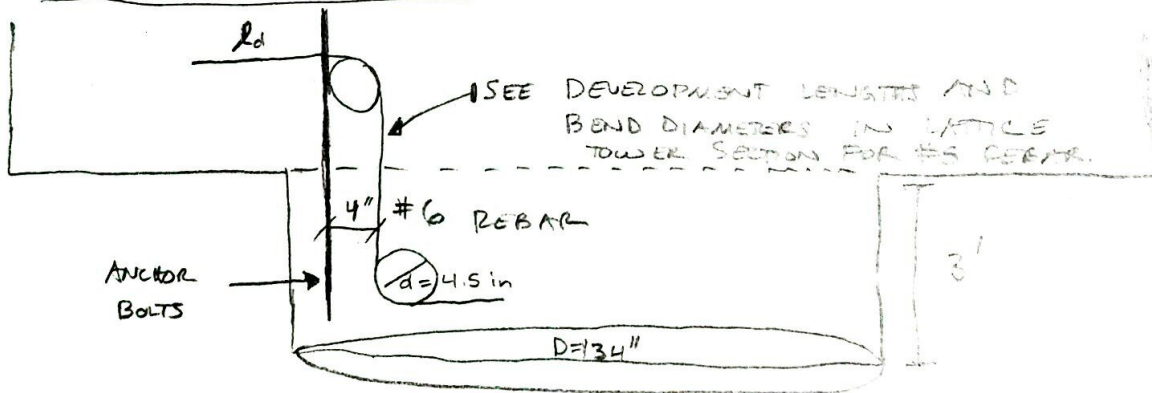 ld
SEE DEVELOPMENT LENGTHS AND
BEND DIAMETERS IN LATTICE
TOWER SECTION FOR #5 REBAR.
4" #6 REBAR
3'
ANCHOR
BOLTS
d=4.5 in
D=134"